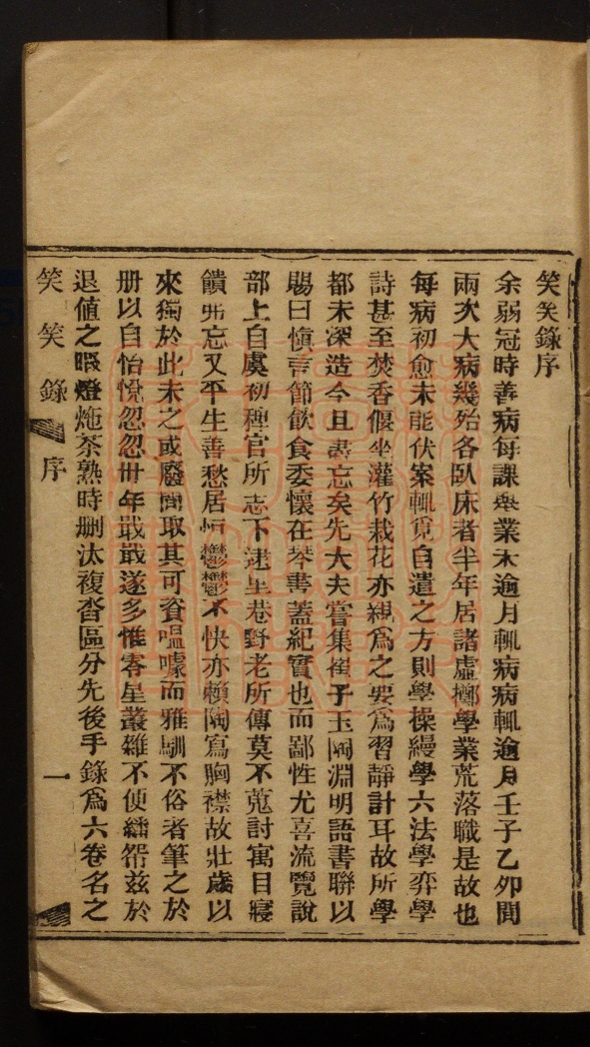 笑笑錄序
余弱冠時善病每課舉業未逾月輒病病輒逾月壬子乙卯間
兩次大病幾殆各臥床者半年居諸虛擲學業荒落職是故也
每病初愈未能伏案輒覓自遣之方則學操縵學六法學弈學
詩甚至焚香偃坐灌竹栽花亦親為之要為習靜計耳故所學
都未深造今且盡忘矣先大夫嘗集崔子玉陶淵明語書聯以
賜曰慎言節飲食委懷在琴書蓋紀實也而鄙性尤喜流覽說
部上自虞初稗官所志下逮里巷野老所傳莫不蒐討寓目寢
饋弗忘又平生善愁居恒鬱鬱不快亦賴陶寫胸襟故壯歲以
來獨於此未之或廢間取其可資嗢噱而雅馴不俗者筆之於
册以自怡悅忽忽卅年戢戢遂多惟零星叢雜不便繙帋茲於
退値之暇燈灺茶熟時刪汰複沓區分先後手錄為六卷名之
笑笑錄 序 一